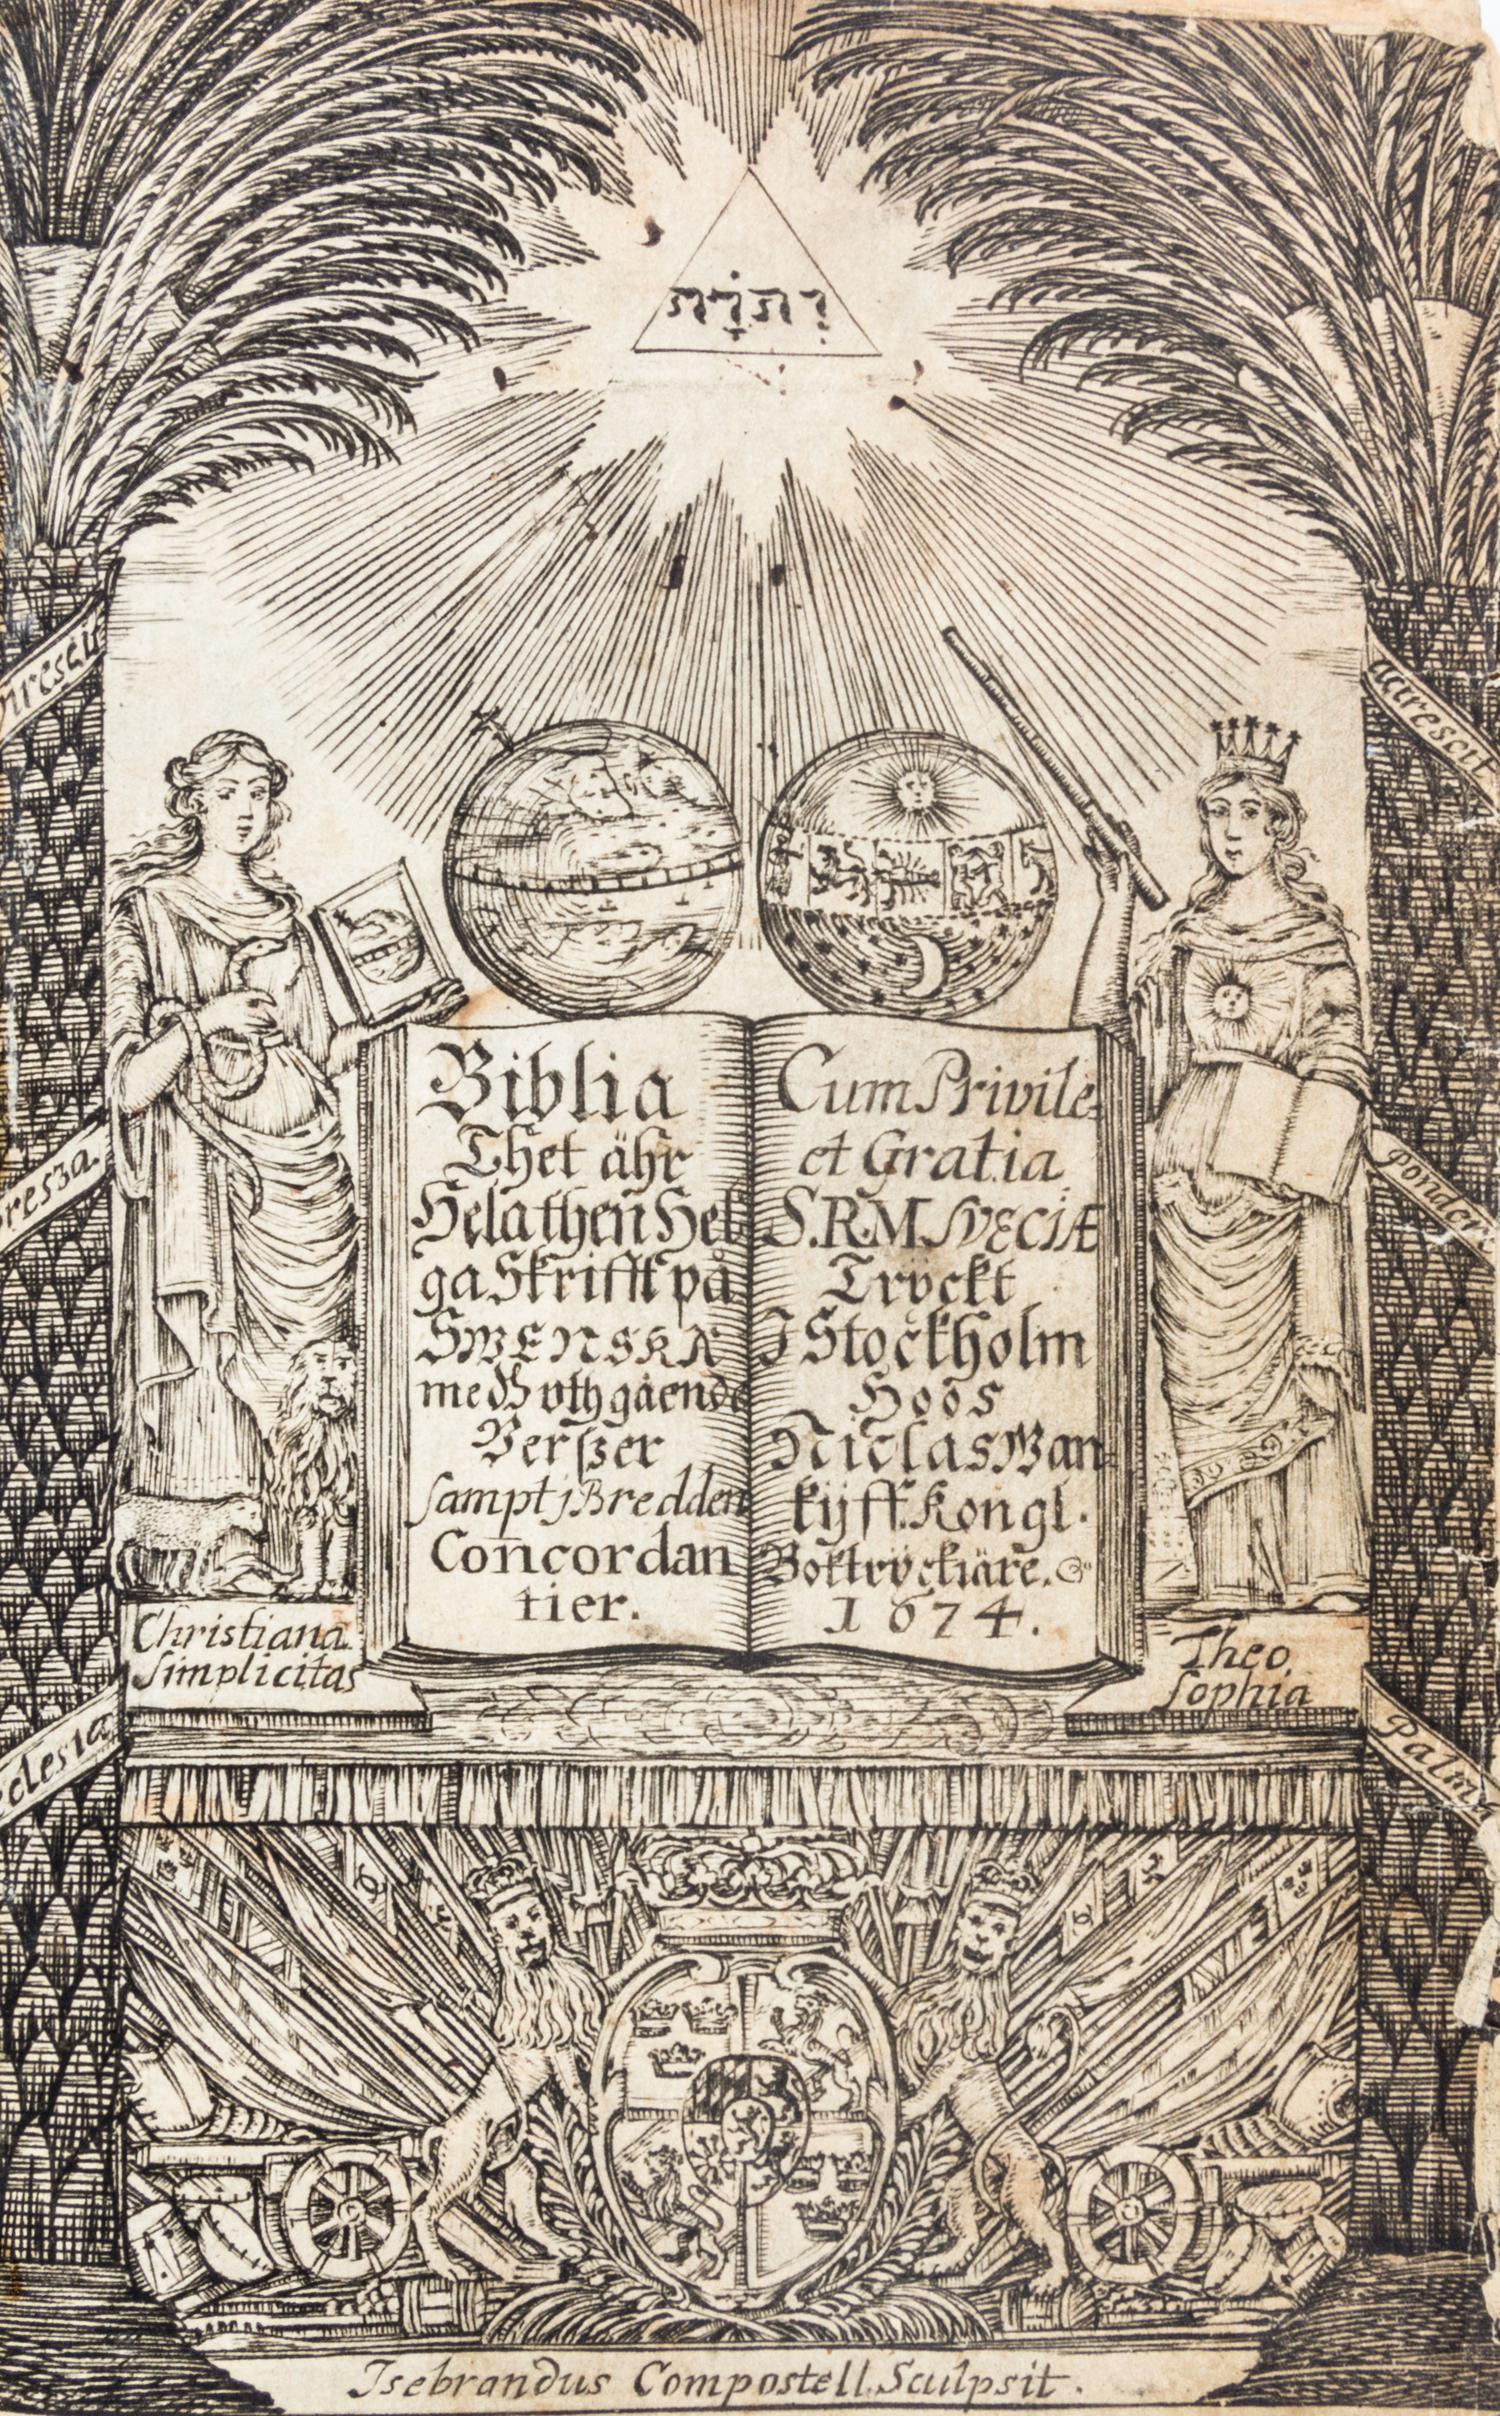 יהוה
Biblia
Thet ähr
Hela then Hel
ga Skrifft på
SWENSKA
medh uthgående
Verßer
sampt j Bredden
Concordan
tier.
Cum Privile:
et Gratia
S.R.M SVECIÆ
Tryckt
I Stockholm
Hoos
Niclas Wan
kijff. Kongl.
Boktryckiäre.
1674.
Christiana
Simplicitas
Theo
sophia
Palma
Isebrandus Compostell. Sculpsit.